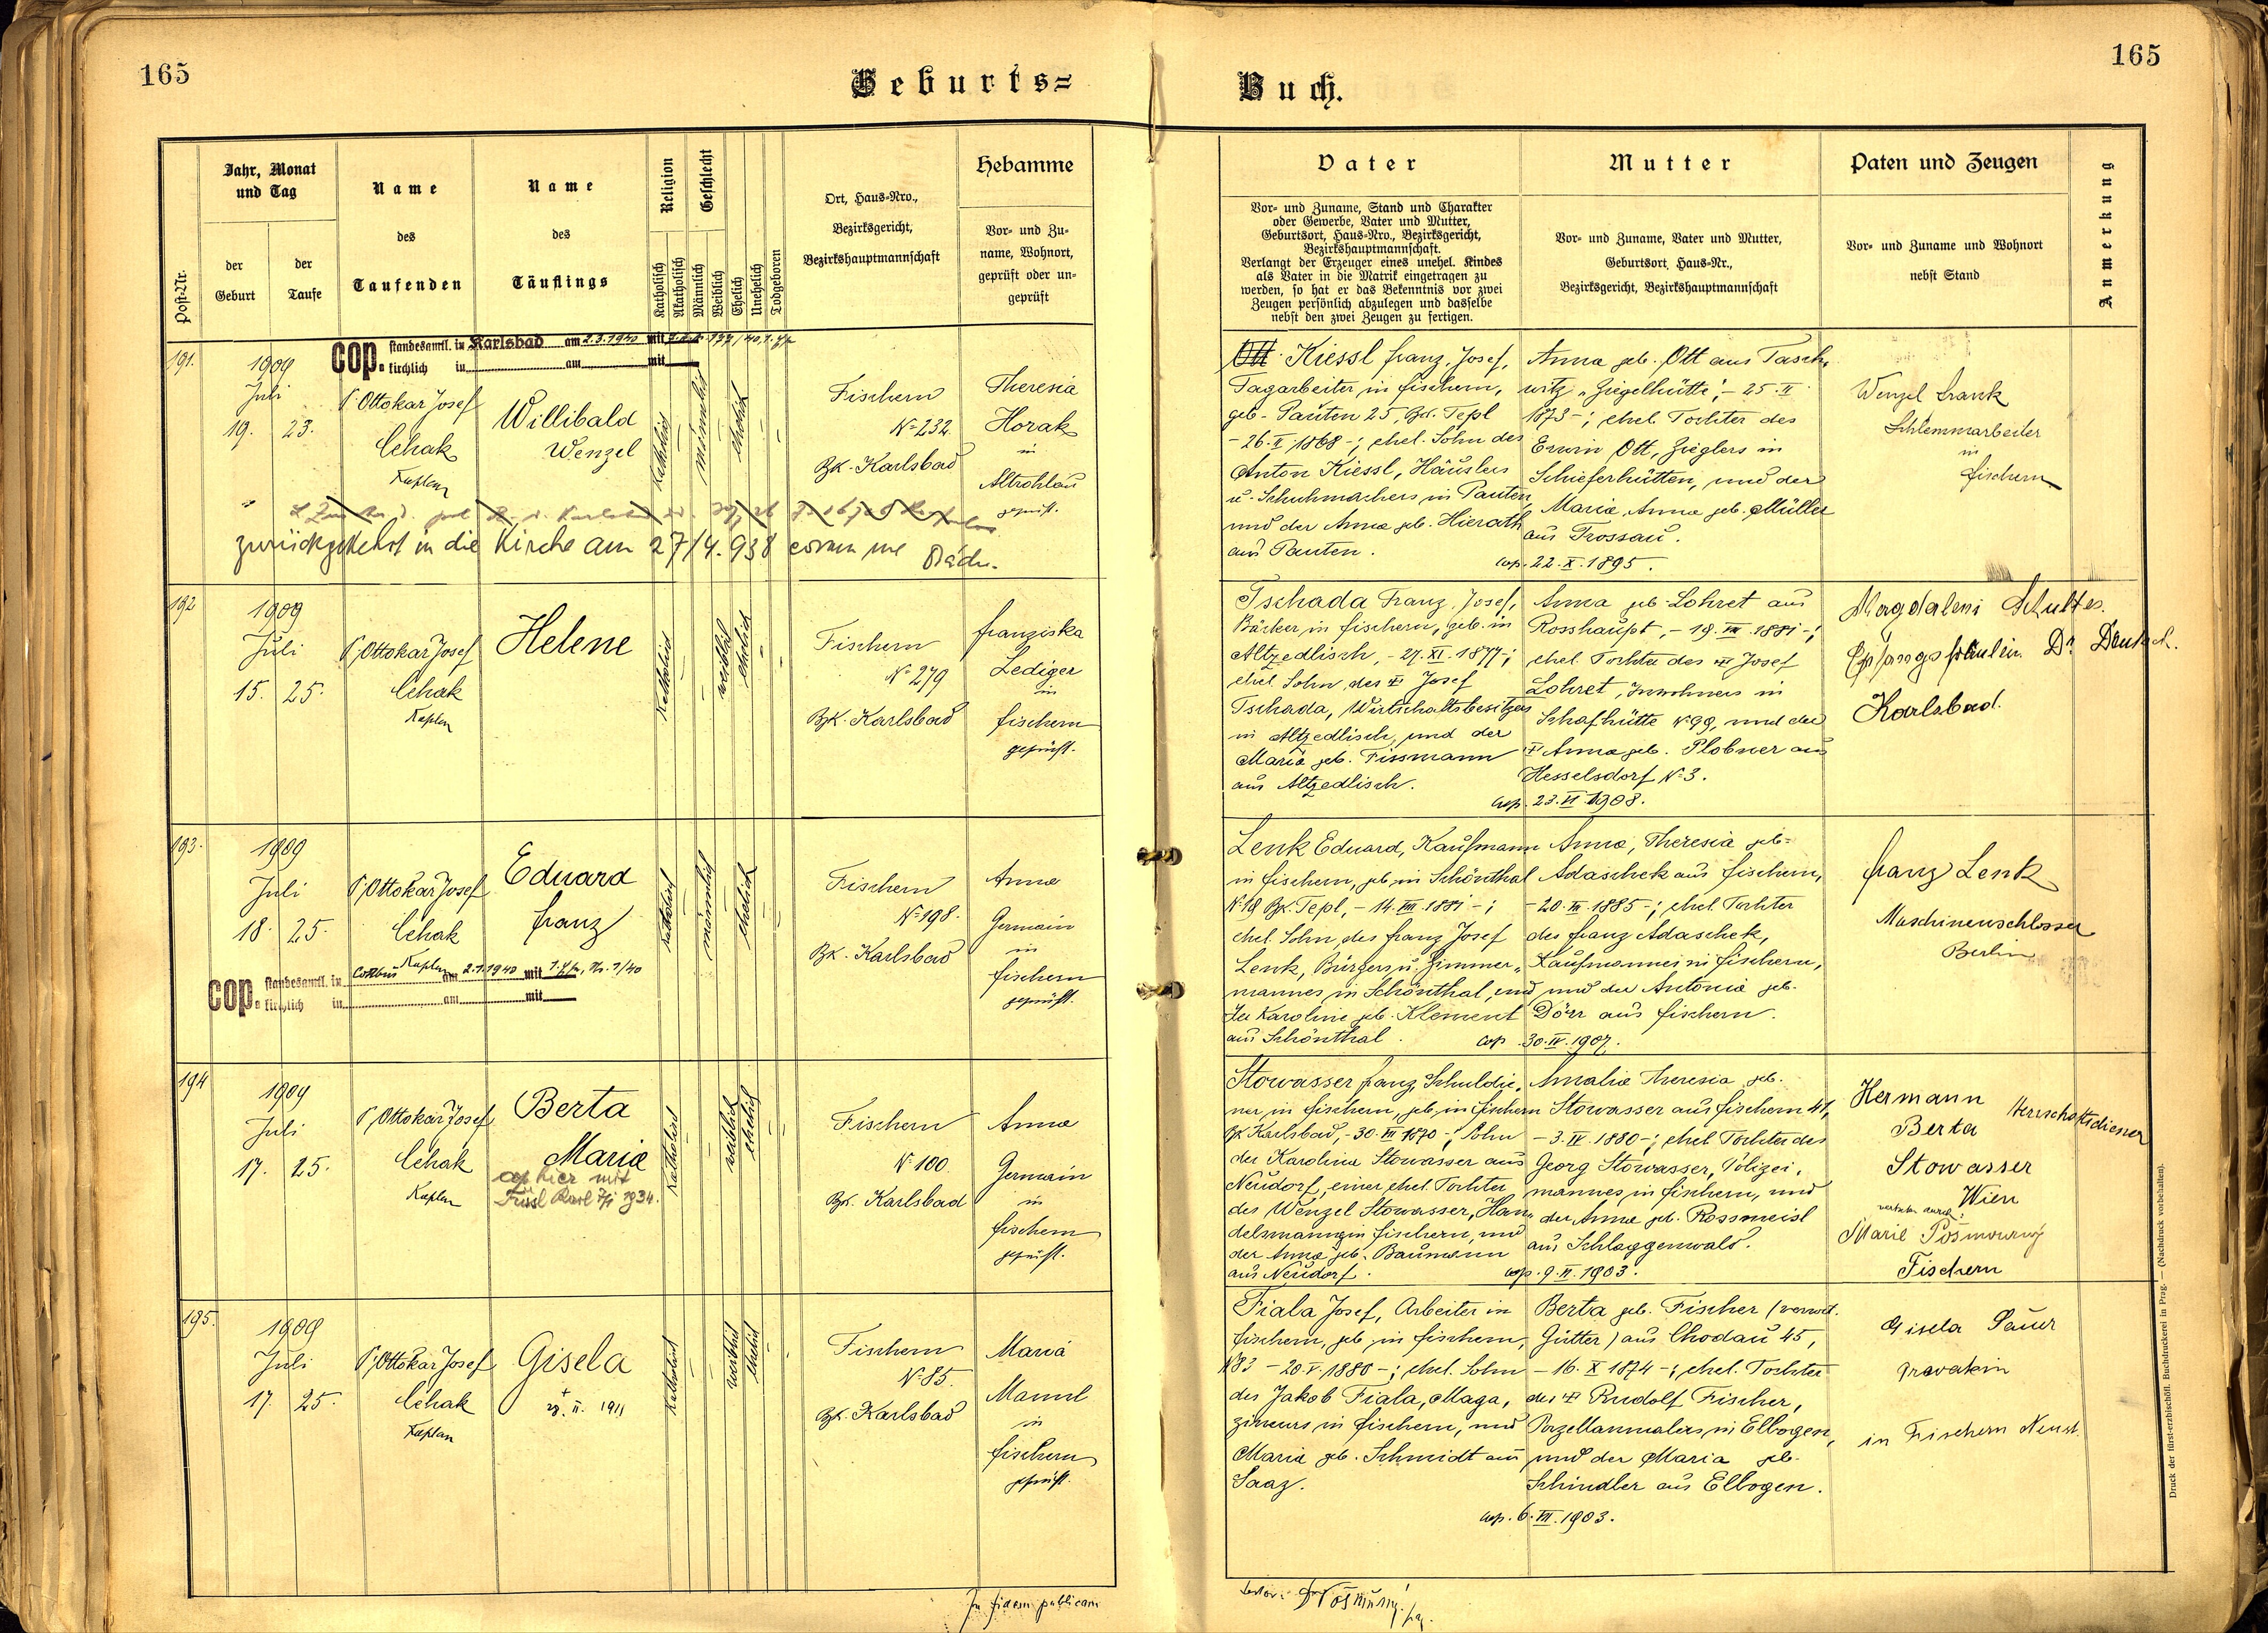 165
Geburts=
Buch.
165
Post-Nr.
Jahr, Monat und Tag
der Geburt
der Taufe
Name des Taufenden
Name des Täuflings
Religion
Katholisch
Akatholisch
Geschlecht
Männlich
Weiblich
Ehelich
Unehelich
Todgeboren
Ort, Haus-Nro., Bezirksgericht, Bezirkshauptmannschaft
Hebamme
Vor- und Zu-
name, Wohnort,
geprüft oder un-
geprüft
Vater
Vor- und Zuname, Stand und Charakter
oder Gewerbe, Vater und Mutter,
Geburtsort, Haus-Nro., Bezirksgericht,
Bezirkshauptmannschaft.
Verlangt der Erzeuger eines unehel. Kindes
als Vater in die Matrik eingetragen zu
werden, so hat er das Bekenntnis vor zwei
Zeugen persönlich abzulegen und dasselbe
nebst den zwei Zeugen zu fertigen.
Mutter
Vor- und Zuname, Vater und Mutter,
Geburtsort, Haus-Nr.,
Bezirksgericht, Bezirkshauptmannschaft
Paten und Zeugen
Vor- und Zuname und Wohnort
nebst Stand
Anmerkung
191.
cop. standesamtl. in Karlsbad am 2.3.1940 mit
kirchlich in am mit
1909
Juli
19. 23.
P. Ottokar Josef
Cehak
Kaplan
Willibald
Wenzel
katholisch
männlich
ehelich
Fischern
No 232
Bzk. Karlsbad
Theresia
Horak
in
Altrohlau
geprüft.
zurückgekehrt in die Kirche am 27/4. 938
Ott Kiessl Franz, Josef,
Tagarbeiter in Fischern,
geb. Pauten 25, Bzk. Tepl
- 26. II. 1868 -; ehel. Sohn des
Anton Kiessl, Häuslers
u. Schuhmachers in Pauten,
und der Anna geb. Hierath
aus Pauten.
Anna geb. Ott aus Tasch-
witz "Ziegelhütte", - 25. II.
1873 -; ehel. Tochter des
Erwin Ott, Zieglers in
Schieferhütten, und der
Maria Anna geb. Müller
aus Trossau.
cop. 22. X. 1895.
Wenzel Frank
Schlemmarbeiter
in
Fischern
192
1909
Juli
15. 25.
P. Ottokar Josef
Cehak
Kaplan
Helene
katholisch
weiblich
ehelich
Fischern
No 279
Bzk. Karlsbad
Franziska
Lediger
in
Fischern
geprüft.
Tschada Franz, Josef,
Bäcker in Fischern, geb. in
Altzedlisch, - 27. XI. 1877 -;
ehel. Sohn des Josef
Tschada, Wirtschaftsbesitzers
in Altzedlisch, und der
Maria geb. Fissmann
aus Altzedlisch.
Anna geb. Lohret aus
Rosshaupt, - 19. III. 1881 -;
ehel. Tochter des Josef
Lohret, Inwohners in
Schafhütte No 99, und der
Anna geb. Plobner aus
Hesselsdorf No 3.
cop. 23. VI. 1908.
Magdalena Schultes.
Empfangsfräulein Dr. Deutsch.
Karlsbad.
193.
1909
Juli
18. 25.
P. Ottokar Josef
Cehak
Kaplan
Eduard
Franz
katholisch
männlich
ehelich
Fischern
No 198.
Bzk. Karlsbad
Anna
Germain
in
Fischern
geprüft.
cop. standesamtl. in Cottbus am 2.1.1940 mit 1. Ehe, Nr. 1/40
kirchlich in am mit
Lenk Eduard, Kaufmann
in Fischern, geb. in Schönthal
No 19 Bzk. Tepl, - 14. VIII. 1881 -;
ehel. Sohn des Franz Josef
Lenk, Bürgers u. Zimmer-
mannes in Schönthal, und
der Karoline geb. Klement
aus Schönthal.
Anna, Theresia geb.
Adaschek aus Fischern,
- 20. III. 1885 -; ehel. Tochter
des Franz Adaschek,
Kaufmannes in Fischern,
und der Antonia geb.
Dörr aus Fischern.
cop. 30. IV. 1907.
Franz Lenk
Maschinenschlosser
Berlin
194
1909
Juli
17. 25.
P. Ottokar Josef
Cehak
Kaplan
Berta
Maria
cop. hier mit
Füssl Karl 7/1 1934.
katholisch
weiblich
ehelich
Fischern
No 100.
Bzk. Karlsbad
Anna
Germain
in
Fischern
geprüft.
Stowasser Franz, Schuldie-
ner in Fischern, geb. in Fischern
Bzk. Karlsbad, - 30. VIII. 1870 -; Sohn
der Karolina Stowasser aus
Neudorf, einer ehel. Tochter
des Wenzel Stowasser, Han-
delsmannes in Fischern, und
der Anna geb. Baumann
aus Neudorf.
Amalia Theresia geb.
Stowasser aus Fischern 41,
- 3. IV. 1880 -; ehel. Tochter des
Georg Stowasser, Polizei-
mannes in Fischern, und
der Anna geb. Rossmeisl
aus Schlaggenwald.
cop. 9. II. 1903.
Hermann Herrschaftsdiener
Berta
Stowasser
Wien
vertreten durch:
Marie Pošmourný
Fischern
195.
1909
Juli
17. 25.
P. Ottokar Josef
Cehak
Kaplan
Gisela
+ 28. II. 1911
katholisch
weiblich
ehelich
Fischern
No 85.
Bzk. Karlsbad
Maria
Mannl
in
Fischern
geprüft.
Fiala Josef, Arbeiter in
Fischern, geb. in Fischern,
No 83 - 20. V. 1880 -; ehel. Sohn
des Jakob Fiala, Maga-
zineurs in Fischern, und
Maria geb. Schmidt aus
Saaz.
Berta geb. Fischer (verwit.
Gütter) aus Chodau 45,
- 16. X. 1874 -; ehel. Tochter
des Rudolf Fischer,
Porzellanmalers in Elbogen,
und der Maria geb.
Schindler aus Elbogen.
cop. 6. VII. 1903.
Gisela Sauer
in Fischern
In fidem publicam
Druck der fürst-erzbischöfl. Buchdruckerei in Prag. — (Nachdruck vorbehalten).